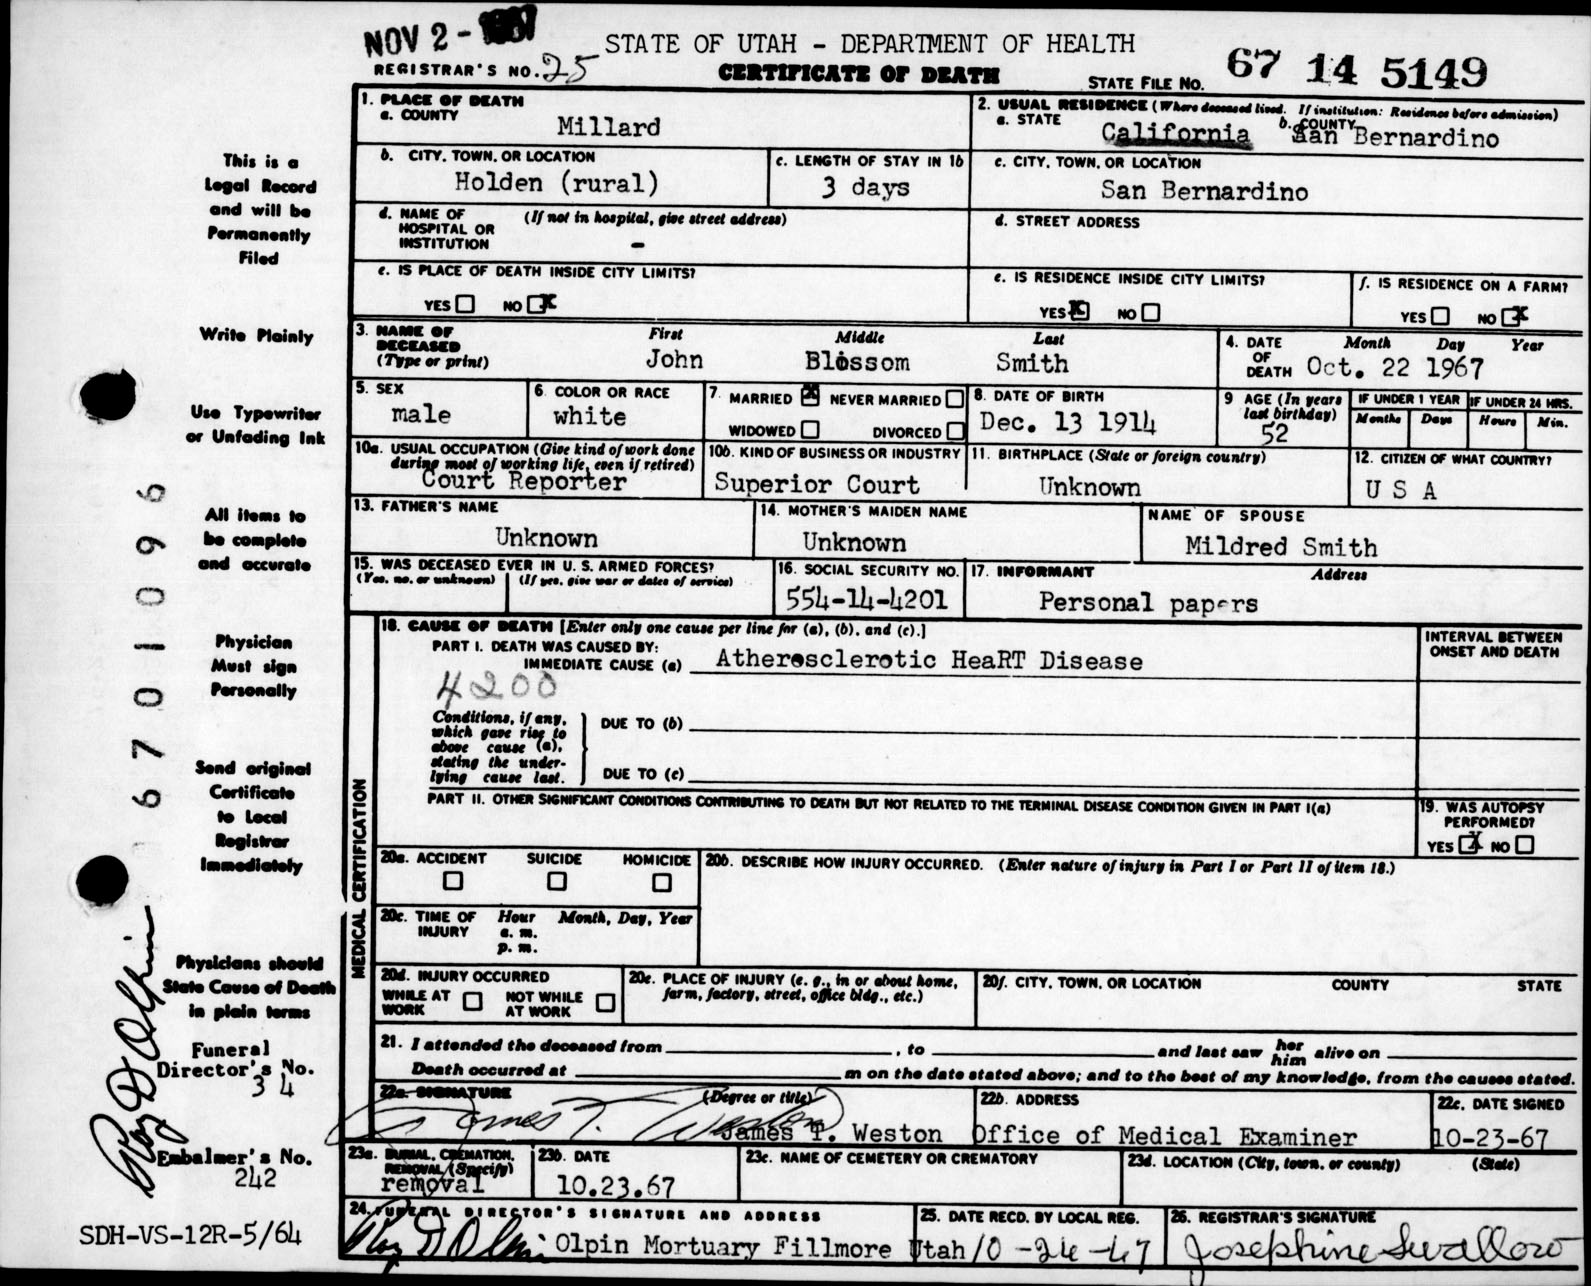 NOV 2 - 1967
STATE OF UTAH - DEPARTMENT OF HEALTH
REGISTRAR'S NO. 25
CERTIFICATE OF DEATH
STATE FILE NO. 67 14 5149
1. PLACE OF DEATH
a. COUNTY
Millard
2. USUAL RESIDENCE (Where deceased lived. If institution: Residence before admission)
a. STATE
California
b. COUNTY
San Bernardino
b. CITY, TOWN, OR LOCATION
Holden (rural)
c. LENGTH OF STAY IN 1b
3 days
c. CITY, TOWN, OR LOCATION
San Bernardino
d. NAME OF HOSPITAL OR INSTITUTION
(If not in hospital, give street address)
-
d. STREET ADDRESS
e. IS PLACE OF DEATH INSIDE CITY LIMITS?
YES NO X
e. IS RESIDENCE INSIDE CITY LIMITS?
YES X NO
f. IS RESIDENCE ON A FARM?
YES NO X
3. NAME OF DECEASED
(Type or print)
First Middle Last
John Blossom Smith
4. DATE OF DEATH
Month Day Year
Oct. 22 1967
5. SEX
male
6. COLOR OR RACE
white
7. MARRIED X NEVER MARRIED
WIDOWED DIVORCED
8. DATE OF BIRTH
Dec. 13 1914
9 AGE (In years last birthday)
52
IF UNDER 1 YEAR
Months Days
IF UNDER 24 HRS.
Hours Min.
10a. USUAL OCCUPATION (Give kind of work done during most of working life, even if retired)
Court Reporter
10b. KIND OF BUSINESS OR INDUSTRY
Superior Court
11. BIRTHPLACE (State or foreign country)
Unknown
12. CITIZEN OF WHAT COUNTRY?
U S A
13. FATHER'S NAME
Unknown
14. MOTHER'S MAIDEN NAME
Unknown
NAME OF SPOUSE
Mildred Smith
15. WAS DECEASED EVER IN U. S. ARMED FORCES?
(Yes, no, or unknown) (If yes, give war or dates of service)
16. SOCIAL SECURITY NO.
554-14-4201
17. INFORMANT Address
Personal papers
MEDICAL CERTIFICATION
18. CAUSE OF DEATH [Enter only one cause per line for (a), (b), and (c).]
PART I. DEATH WAS CAUSED BY:
IMMEDIATE CAUSE (a) Atherosclerotic HeaRT Disease
INTERVAL BETWEEN ONSET AND DEATH
4200
Conditions, if any, which gave rise to above cause (a), stating the underlying cause last.
DUE TO (b)
DUE TO (c)
PART II. OTHER SIGNIFICANT CONDITIONS CONTRIBUTING TO DEATH BUT NOT RELATED TO THE TERMINAL DISEASE CONDITION GIVEN IN PART I(a)
19. WAS AUTOPSY PERFORMED?
YES X NO
20a. ACCIDENT SUICIDE HOMICIDE
20b. DESCRIBE HOW INJURY OCCURRED. (Enter nature of injury in Part I or Part II of item 18.)
20c. TIME OF INJURY
Hour Month, Day, Year
a. m.
p. m.
20d. INJURY OCCURRED
WHILE AT WORK NOT WHILE AT WORK
20e. PLACE OF INJURY (e. g., in or about home, farm, factory, street, office bldg., etc.)
20f. CITY, TOWN, OR LOCATION COUNTY STATE
21. I attended the deceased from , to and last saw her him alive on
Death occurred at m on the date stated above; and to the best of my knowledge, from the causes stated.
22a. SIGNATURE (Degree or title)
James T. Weston
James T. Weston
22b. ADDRESS
Office of Medical Examiner
22c. DATE SIGNED
10-23-67
23a. BURIAL, CREMATION, REMOVAL (Specify)
removal
23b. DATE
10.23.67
23c. NAME OF CEMETERY OR CREMATORY
23d. LOCATION (City, town, or county) (State)
24. FUNERAL DIRECTOR'S SIGNATURE AND ADDRESS
Roy D Olpin Olpin Mortuary Fillmore Utah
25. DATE RECD. BY LOCAL REG.
10-24-67
26. REGISTRAR'S SIGNATURE
Josephine Swallow
This is a
Legal Record
and will be
Permanently
Filed
Write Plainly
Use Typewriter
or Unfading Ink
All items to
be complete
and accurate
Physician
Must sign
Personally
Send original
Certificate
to Local
Registrar
Immediately
Physicians should
State Cause of Death
in plain terms
Funeral
Director's No.
34
Embalmer's No.
242
SDH-VS-12R-5/64
Roy D Olpin
6701096